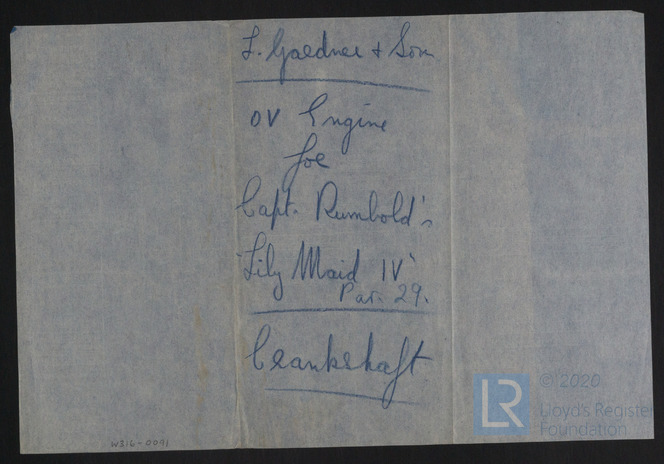 L. Gardner & Son
OV Engine
for
Capt. Rumbold's
"Lily Maid IV"
Par. 29.
Crankshaft
W316-0091
LR
© 2020
Lloyd's Register
Foundation